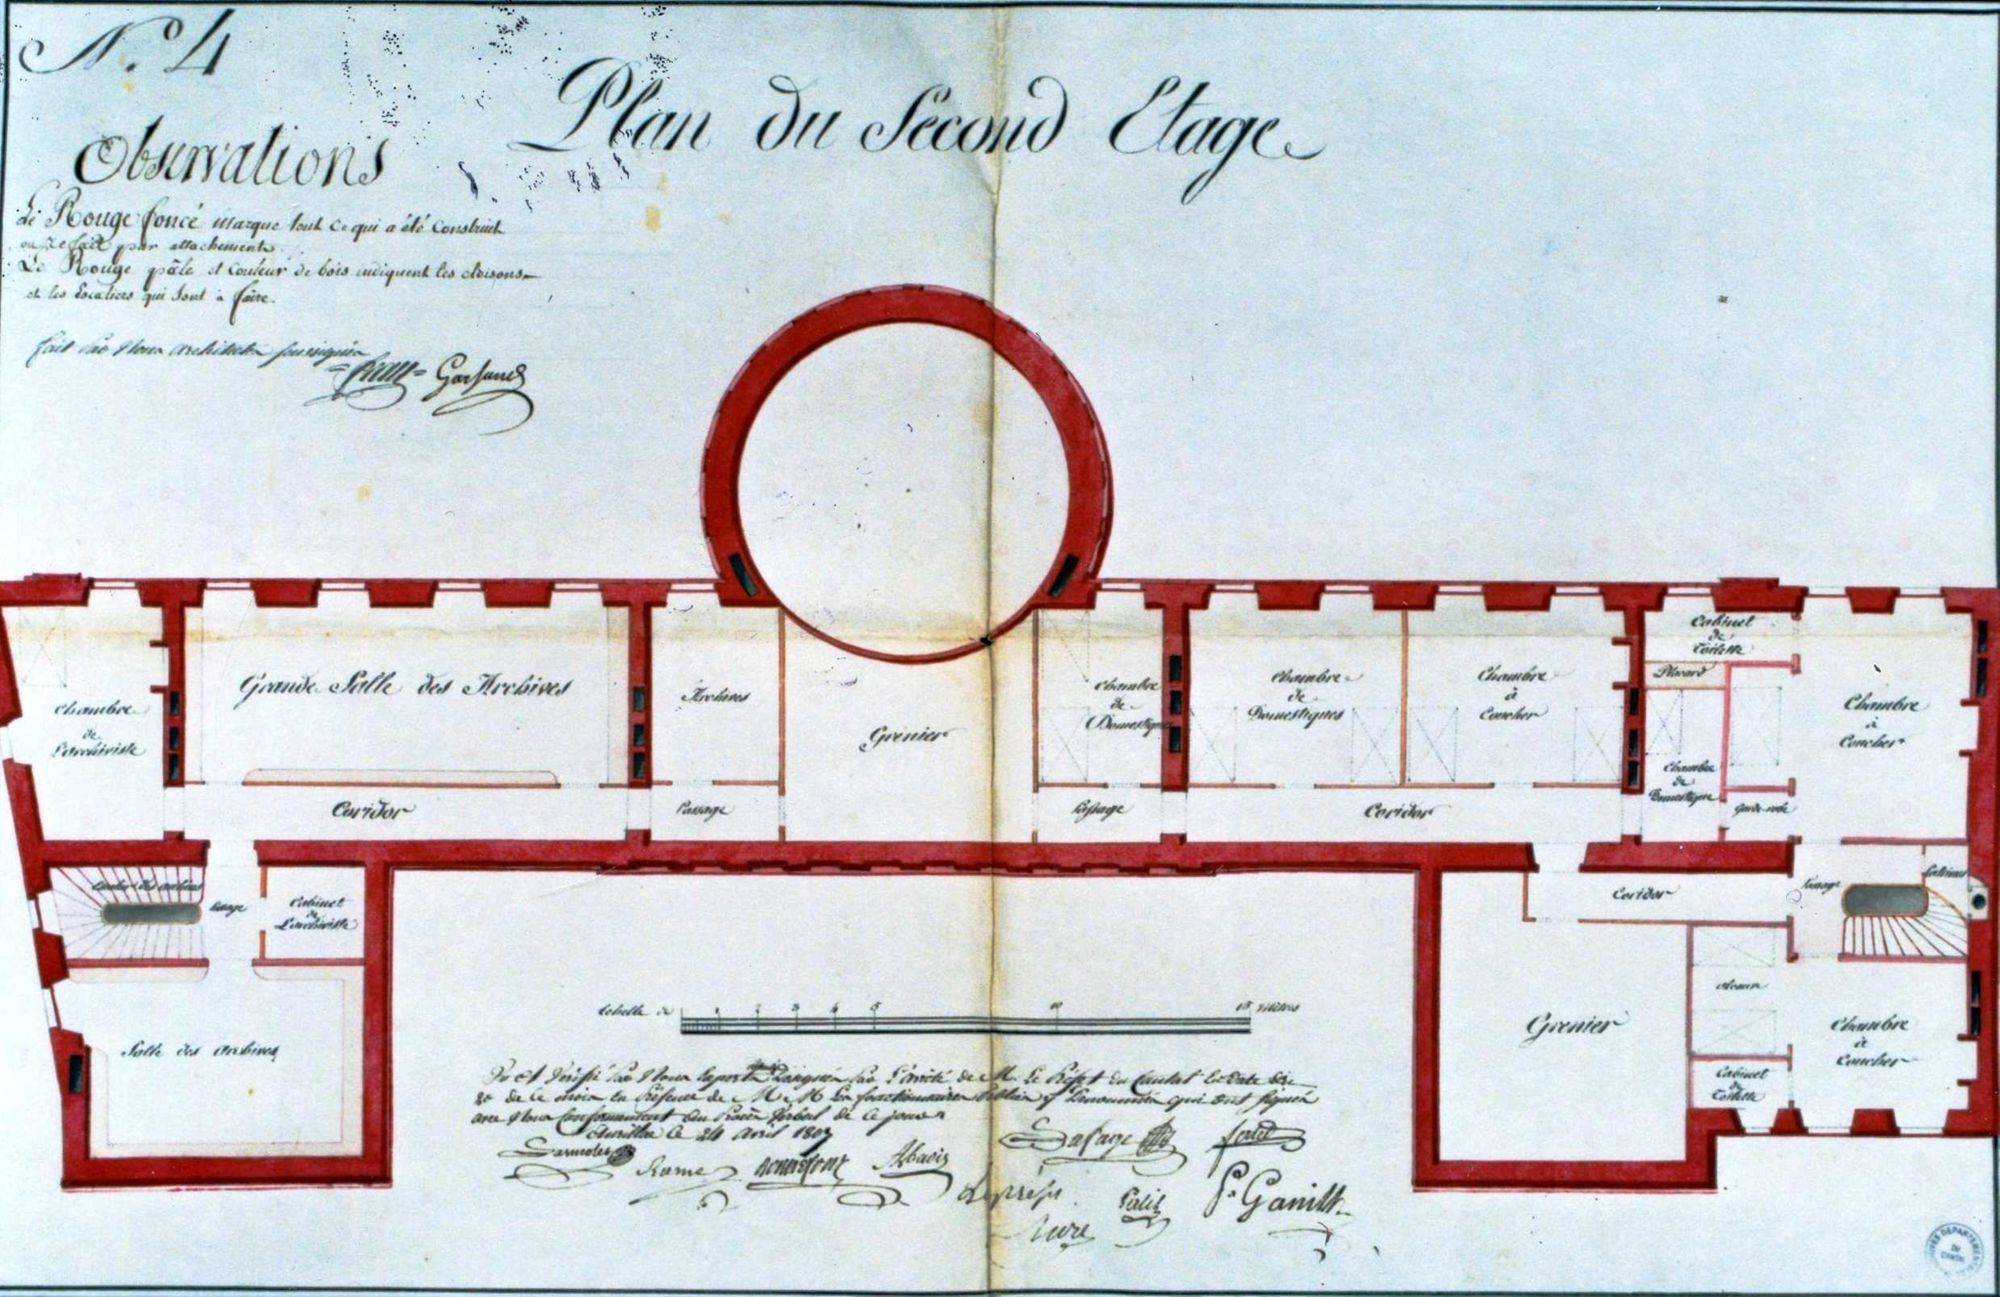 N.º 4
Plan du Second Etage
Observations
Le Rouge foncé marque tout ce qui a été construit
ou refait par attachement.
Le Rouge pâle et couleur de bois indiquent les cloisons
et les Escaliers qui sont à faire.
fait par Nous architectes soussignés
Grenier
Grande Salle des Archives
Archives
Chambre
de
L'archiviste
Coridor
Passage
Chambre
de
Domestique
Passage
Chambre
de
Domestiques
Chambre
à
Coucher
Coridor
Cabinet
de
Toilette
Placard
Chambre
de
Domestique
Garde-robe
Chambre
à
Coucher
Escalier des archives
Passage
Cabinet
de
L'archiviste
Salle des archives
Coridor
Passage
Latrines
Grenier
Alcove
Cabinet
de
Toilette
Chambre
à
Coucher
Echelle de 1 2 3 4 5 10 15 mètres
Vu et Vérifié par Nous par L'arrêté de M. Le Préfet du Cantal en date du
20 de ce mois en Présence de M. M. Les fonctionnaires Publics y dénommés qui ont signés
avec Nous Conformément au Procès Verbal de ce jour
Aurillac le 24 avril 1807
Lafage
Rame
Abadie
Palis
P. Ganilh
ARCHIVES DEPARTEMENTALES
DU
CANTAL